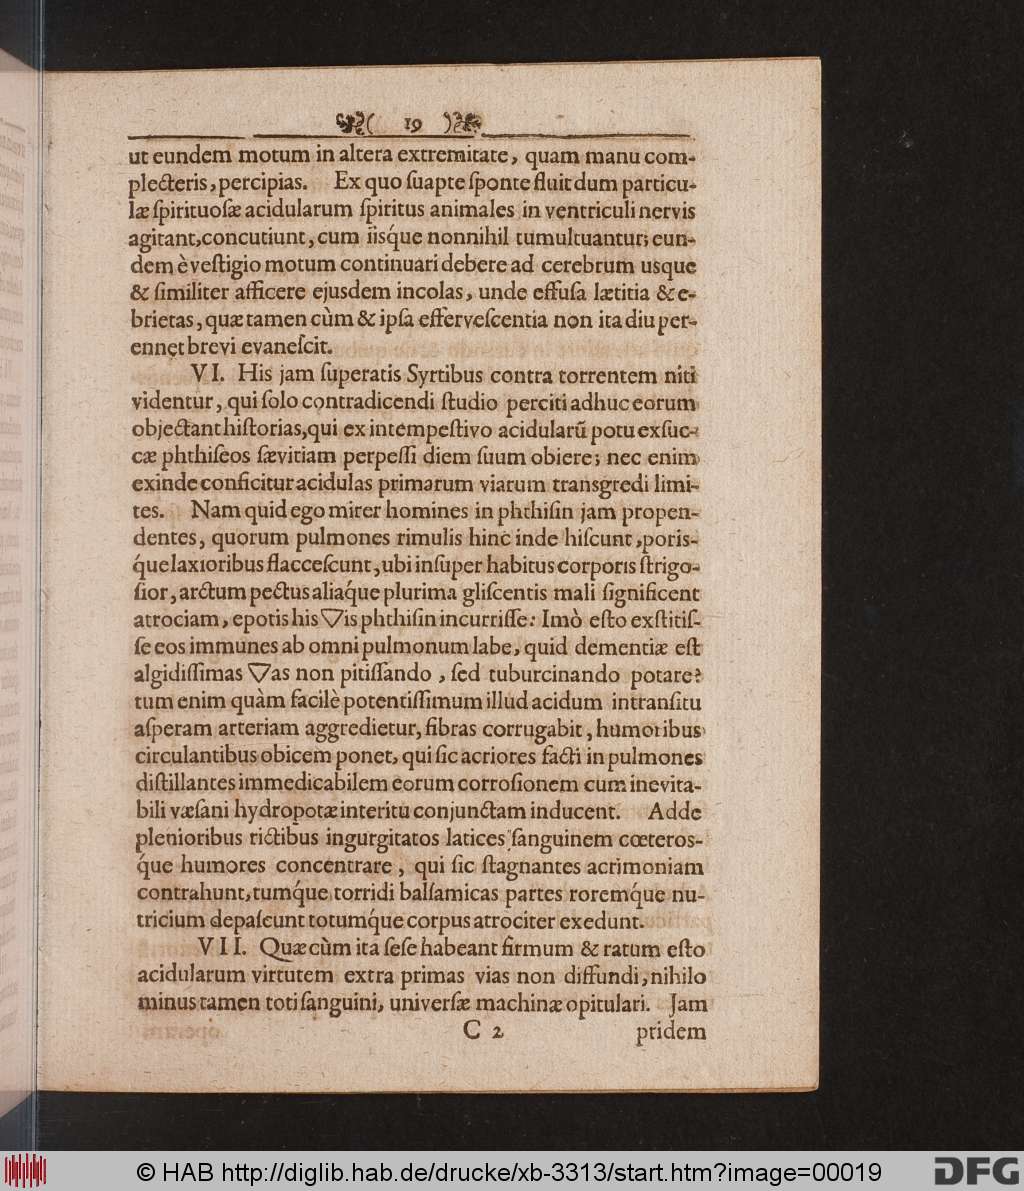 ( 19 )
ut eundem motum in altera extremitate, quam manu com-
plecteris, percipias. Ex quo ſuapte ſponte fluit dum particu-
læ ſpirituoſæ acidularum ſpiritus animales in ventriculi nervis
agitant, concutiunt, cum iisq́ue nonnihil tumultuantur; eun-
dem è veſtigio motum continuari debere ad cerebrum usque
& ſimiliter afficere ejusdem incolas, unde effuſa lætitia & e-
brietas, quæ tamen cùm & ipſa efferveſcentia non ita diu per-
ennet brevi evaneſcit.
VI. His jam ſuperatis Syrtibus contra torrentem niti
videntur, qui ſolo contradicendi ſtudio perciti adhuc eorum
objectant hiſtorias, qui ex intempeſtivo acidularũ potu exſuc-
cæ phthiſeos ſævitiam perpeſſi diem ſuum obiere; nec enim
exinde conficitur acidulas primarum viarum transgredi limi-
tes. Nam quid ego mirer homines in phthiſin jam propen-
dentes, quorum pulmones rimulis hinc inde hiſcunt, poris-
q́ue laxioribus flacceſcunt, ubi inſuper habitus corporis ſtrigo-
ſior, arctum pectus aliaq́ue plurima gliſcentis mali ſignificent
atrociam, epotis his ▽is phthiſin incurriſſe: Imò eſto exſtitiſ-
ſe eos immunes ab omni pulmonum labe, quid dementiæ eſt
algidiſſimas ▽as non pitiſſando, ſed tuburcinando potare?
tum enim quàm facilè potentiſſimum illud acidum in tranſitu
aſperam arteriam aggredietur, fibras corrugabit, humoribus
circulantibus obicem ponet, qui ſic acriores facti in pulmones
diſtillantes immedicabilem eorum corroſionem cum inevita-
bili væſani hydropotæ interitu conjunctam inducent. Adde
plenioribus rictibus ingurgitatos latices ſanguinem cœteros-
q́ue humores concentrare, qui ſic ſtagnantes acrimoniam
contrahunt, tumq́ue torridi balſamicas partes roremq́ue nu-
tricium depaſcunt totumq́ue corpus atrociter exedunt.
VII. Quæ cùm ita ſeſe habeant firmum & ratum eſto
acidularum virtutem extra primas vias non diffundi, nihilo
minus tamen toti ſanguini, univerſæ machinæ opitulari. Jam
C 2 pridem
© HAB http://diglib.hab.de/drucke/xb-3313/start.htm?image=00019
DFG